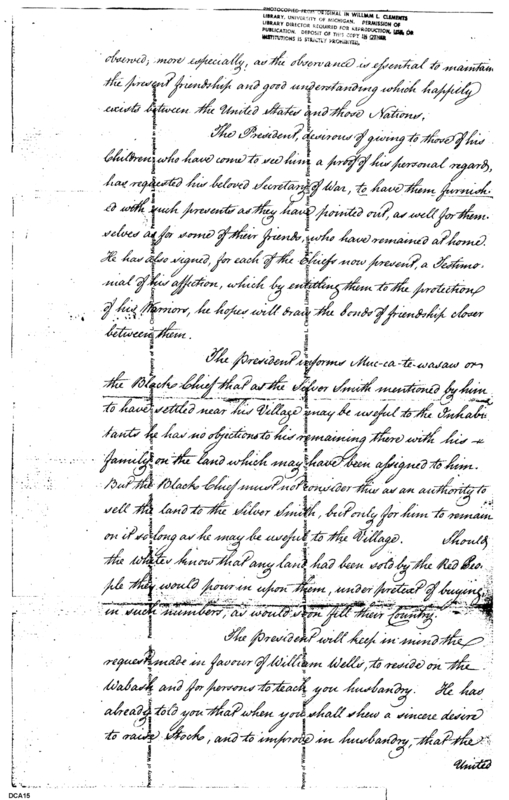 PHOTOCOPIED FROM ORIGINAL IN WILLIAM L. CLEMENTS
LIBRARY, UNIVERSITY OF MICHIGAN. PERMISSION OF
LIBRARY DIRECTOR REQUIRED FOR REPRODUCTION, USE, OR
PUBLICATION. DEPOSIT OF THIS COPY IN OTHER
INSTITUTIONS IS STRICTLY PROHIBITED.
observed; more especially, as the observance is essential to maintain
the present friendship and good understanding which happily
exists between the United States and those Nations.
The President, desirous of giving to those of his
Children who have come to see him a proof of his personal regard,
has requested his beloved Secretary of War, to have them furnish-
ed with such presents as they have pointed out, as well for them-
selves as for some of their friends, who have remained at home.
He has also signed, for each of the Chiefs now present, a Testimo-
nial of his affection, which by entitling them to the protection
of his Warriors, he hopes will draw the bonds of friendship closer
between them.
The President informs Muc-ca-te-wasaw or
the Black Chief that as the Silver Smith mentioned by him
to have settled near his Village may be useful to the Inhabi-
tants he has no objections to his remaining there with his
family on the land which may have been assigned to him.
But the Black Chief must not consider this as an authority to
sell the land to the Silver Smith, but only for him to remain
on it so long as he may be useful to the Village. Should
the whites know that any land had been sold by the Red Peo-
ple they would pour in upon them, under pretext of buying,
in such numbers, as would soon fill their Country.
The President will keep in mind the
request made in favour of William Wells, to reside on the
Wabash and for persons to teach you husbandry. He has
already told you that when you shall shew a sincere desire
to raise Stock, and to improve in husbandry, that the
United
DCA15